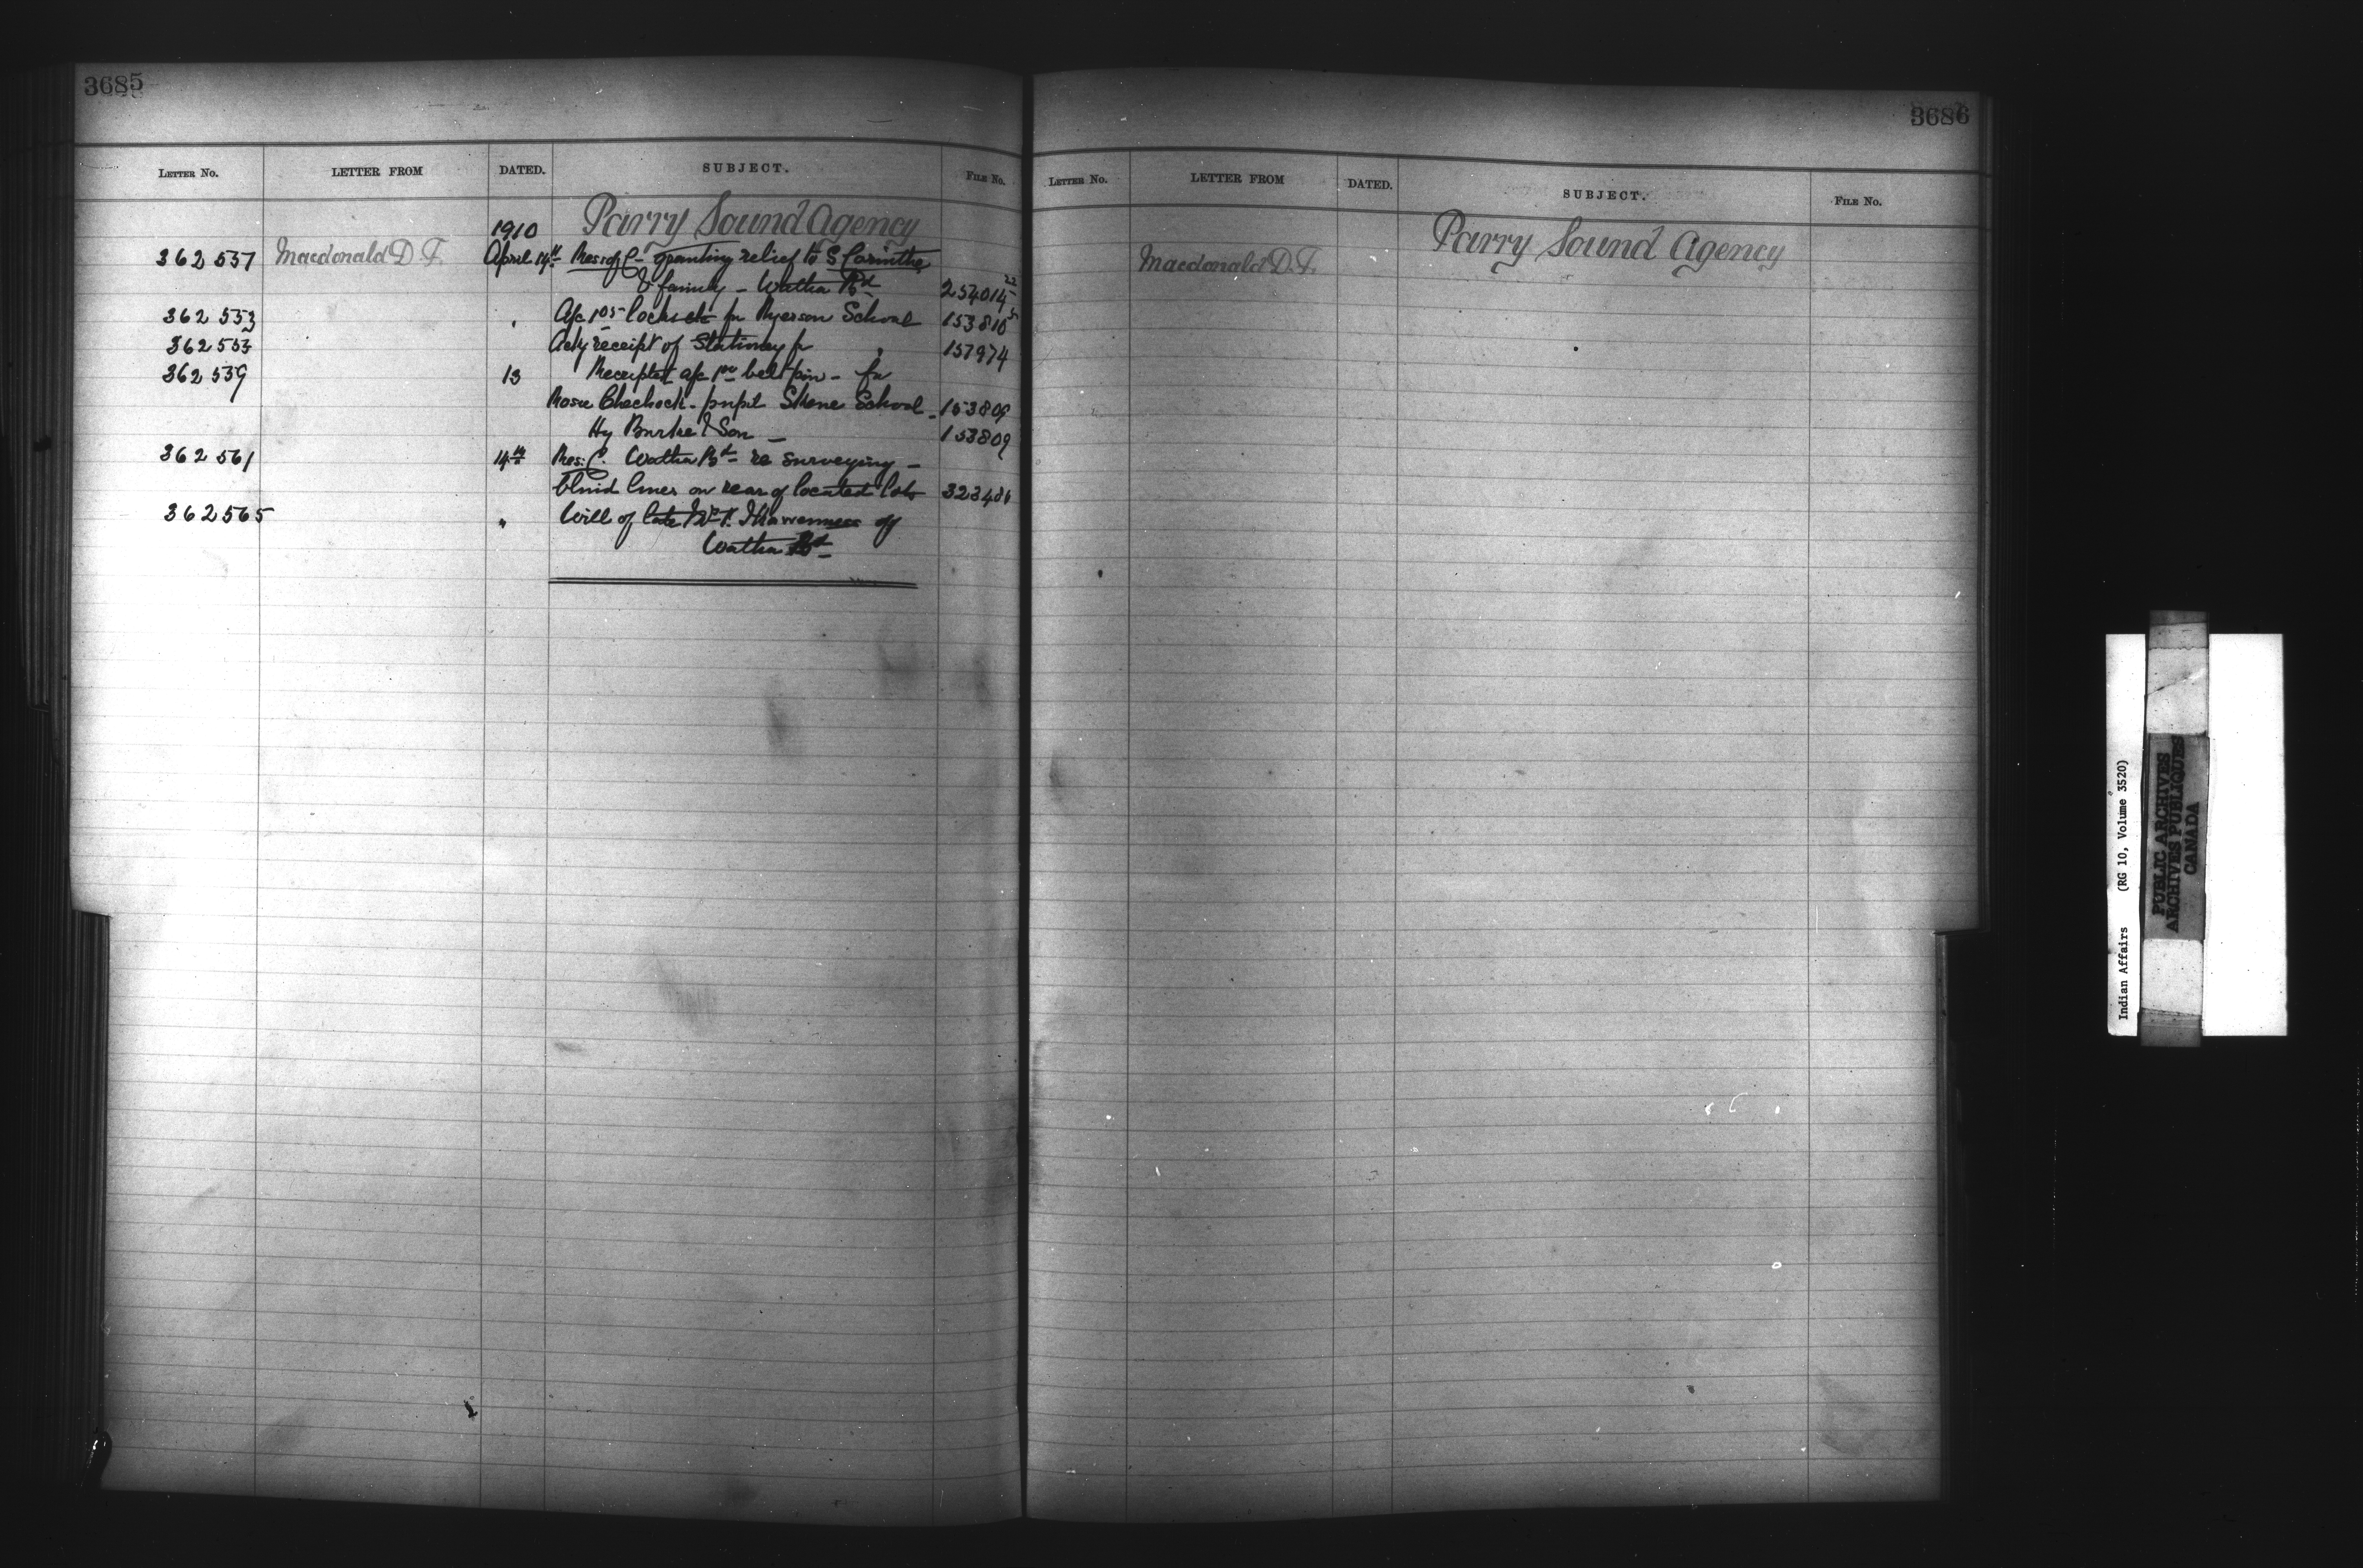 3685
LETTER NO. LETTER FROM DATED. SUBJECT. FILE NO.
1910 Parry Sound Agency
362537 Macdonald D. F. April 14th Res of C- granting relief to S
& family - Watha Bd 254014-22
362553 " A/c 1.05 locks etc for Ryerson School 153810
362553 Ackg receipt of Stationery for " 157974
362539 13 Receipted a/c 1.00 belt pin - for
Rosie Chechock - pupil Skene School - 153809
Hy Burke & Son - 153809
362561 14th Res: C. Watha Bd - re surveying -
blind lines on rear of located lots 323486
362565 " Will of late of
Watha Bd -
3686
LETTER NO. LETTER FROM DATED. SUBJECT. FILE NO.
Parry Sound Agency
Macdonald D. F.
Indian Affairs (RG 10, Volume 3520)
PUBLIC ARCHIVES
ARCHIVES PUBLIQUES
CANADA